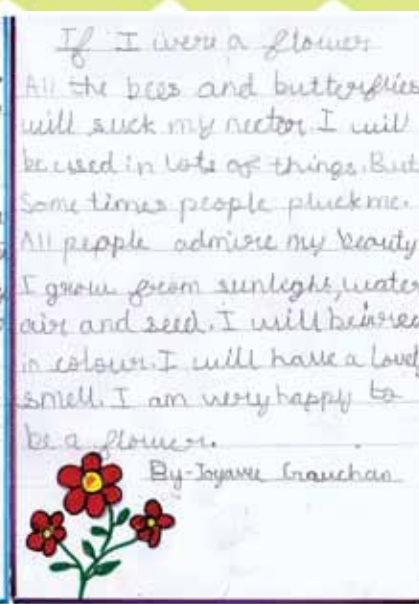 If I were a flower
All the bees and butterflies
will suck my nector. I will
be used in lots of things. But
Some times people pluck me.
All people admire my beauty
I grow from sunlight, water
air and seed. I will be in red
in colour. I will have a lovel
smell. I am very happy to
be a flower.
By-